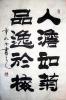 人澹如菊
品逸於梅